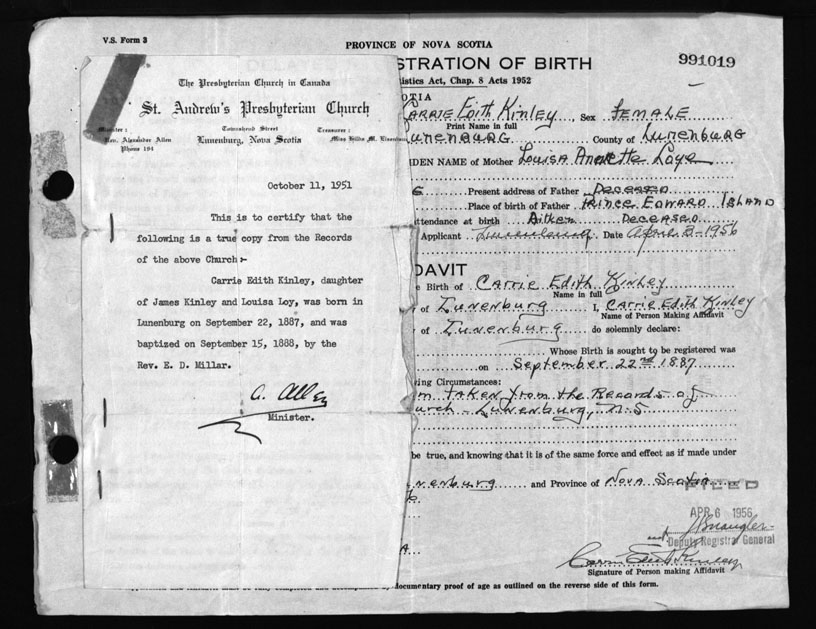 V.S. Form 3
PROVINCE OF NOVA SCOTIA
991019
STRATION OF BIRTH
istics Act, Chap. 8 Acts 1952
OTIA
CARRIE Edith Kinley, Sex FEMALE
Print Name in full
LUNENBURG County of LUNENBURG
IDEN NAME of Mother Louisa Loye
Present address of Father Deceased
Place of birth of Father PRINCE EDWARD ISLAND
ttendance at birth Aitken Deceased
Applicant Lunenburg Date April 3-1956
DAVIT
e Birth of Carrie Edith Kinley
Name in full
of Lunenburg I, Carrie Edith Kinley
Name of Person Making Affidavit
of Lunenburg do solemnly declare:
Whose Birth is sought to be registered was
on September 22nd 1887
ing Circumstances:
m Taken from the Records of
urch - Lunenburg, N.S
be true, and knowing that it is of the same force and effect as if made under
unenburg and Province of Nova Scotia
FILED
APR 6 1956
and
Deputy Registrar General
Carrie Edith Kinley
Signature of Person making Affidavit
documentary proof of age as outlined on the reverse side of this form.
The Presbyterian Church in Canada
St. Andrew's Presbyterian Church
Minister: Townshend Street Treasurer:
Rev. Alexander Allen Lunenburg, Nova Scotia Miss Hilda M. Eisenhau
Phone 194
October 11, 1951
This is to certify that the
following is a true copy from the Records
of the above Church:-
Carrie Edith Kinley, daughter
of James Kinley and Louisa Loy, was born in
Lunenburg on September 22, 1887, and was
baptized on September 15, 1888, by the
Rev. E. D. Millar.
A. Allen
Minister.